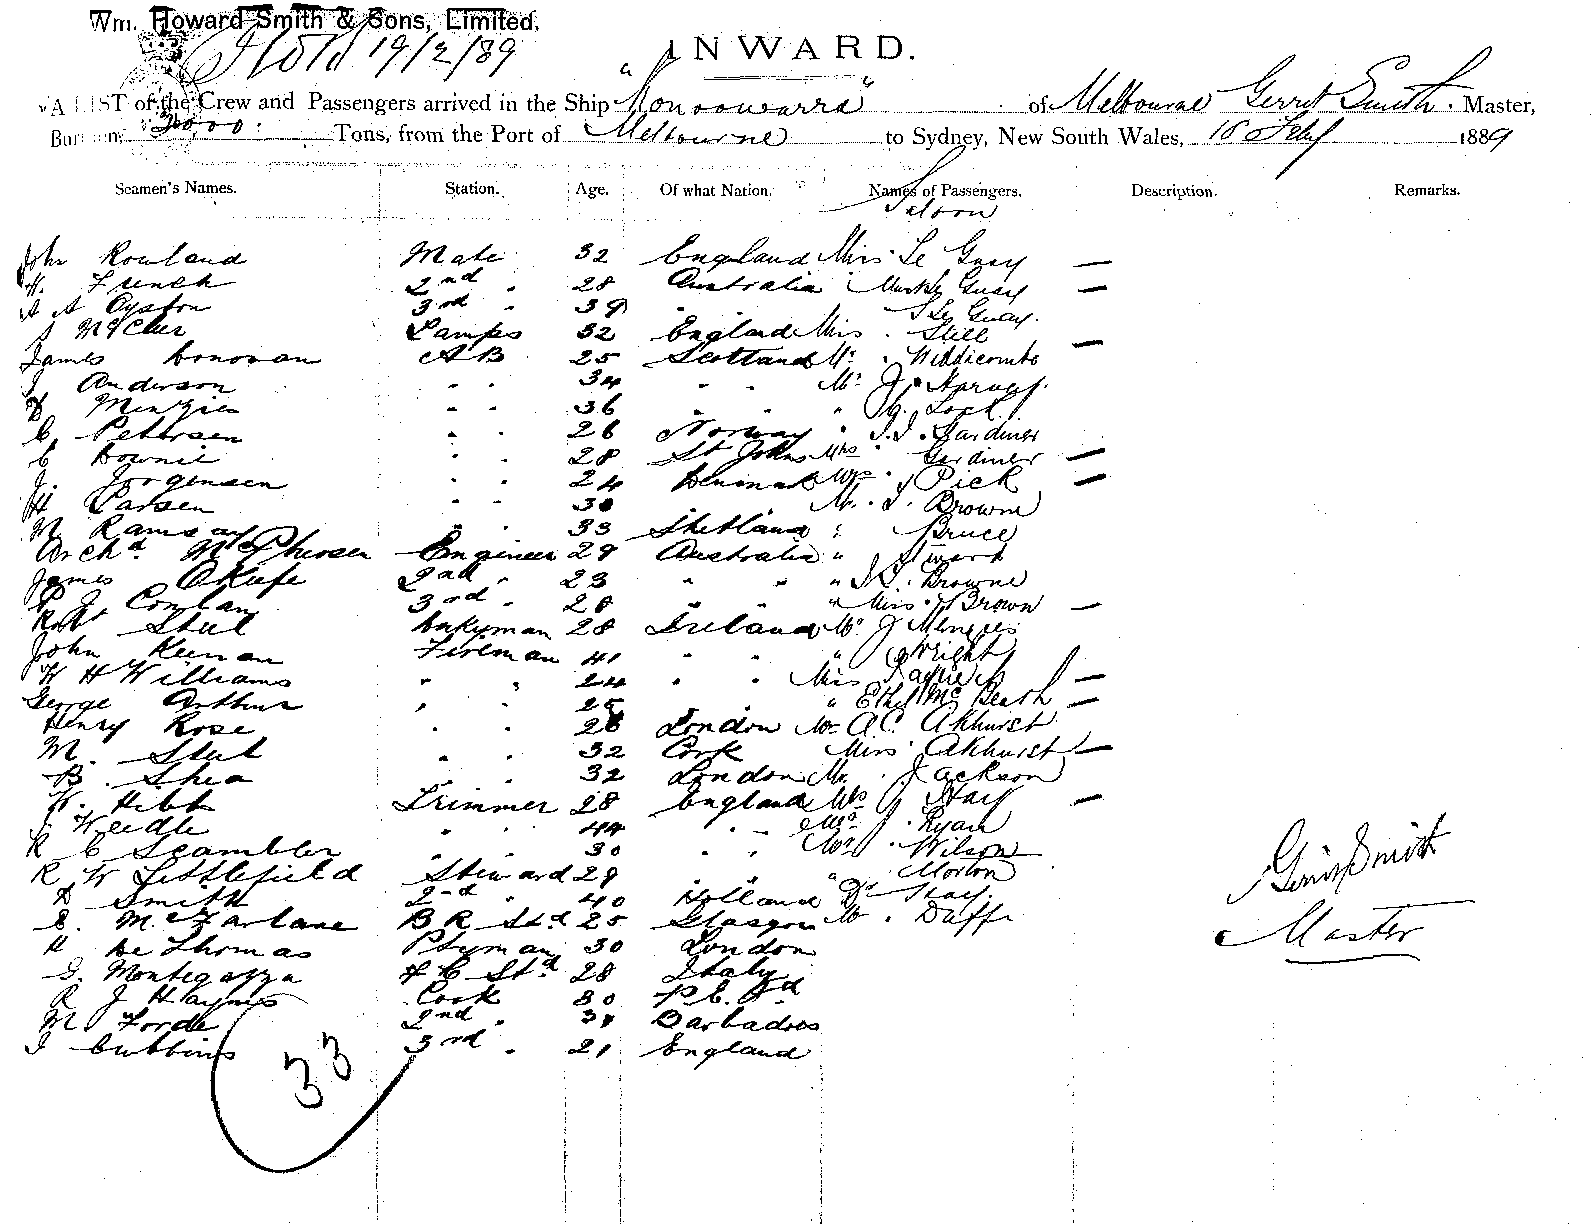 Wm. Howard Smith & Sons, Limited.
19/2/89
INWARD.
A LIST of the Crew and Passengers arrived in the Ship "Konoowarra" of Melbourne Gerrit Smith. Master,
Burden, 2000. Tons, from the Port of Melbourne to Sydney, New South Wales, 18 Feby 1889
Seamen's Names. Station. Age. Of what Nation. Names of Passengers. Description. Remarks.
Saloon
John Rowland Mate 32 England Miss Le Guay —
H. French 2nd " 28 Australia Guay —
A A Oyston 3rd " 39 " S Le Guay.
J Lamps 32 England Miss . Still —
James Conovan AB 25 Scotland Mr . Widdicombe
J Anderson " " 34 " " Mr J.
D Menzies " " 36 " " " G. Lock
C. Petersen " " 26 Norway " J.J. Gardiner
C Downie " " 28 St Johns Mrs " Gardiner —
J. Jorgensen " " 24 Denmark Mrs . Pick —
H Larsen " " 30 Mr. J. Browne
M Ramsay " " 33 Shetland " Bruce
Archd McPherson Engineer 29 Australia " Stward
James OKeefe 2nd " 23 " " " J.S. Browne
P J Conlan 3rd " 28 " " " Miss Brown —
Robt Steel Donkyman 28 Ireland Mr J Menzies
John Keenan Fireman 41 " " " Wright
W H Williams " " 24 " " Miss —
George Arthur " " 25 " Ethel Mc Beath —
Henry Rose " " 28 London Mr A.C. Akhurst
M. Steel " " 32 Cork Miss Akhurst —
B. Shea " " 32 London Mr. Jackson
W. Hibb Trimmer 28 England Mrs J Hay —
J Weedle " " 44 " " J. Ryan
R C Scambler " " 30 " " Mr . Wilson
R W Littlefield Steward 29 " " " Morton
D Smith 2nd " 40 Holland Dr
E. McFarlane B R Std 25 Glasgow Mr . Duff
H De Thomas Ptyman 30 London
G. Montegazza F C Std 28 Italy
R J Haynes Cook 30 P.E. Isd
M Forde 2nd " Barbadoes
J Cubbins 3rd " 21 England
33
Gerrit Smith
Master